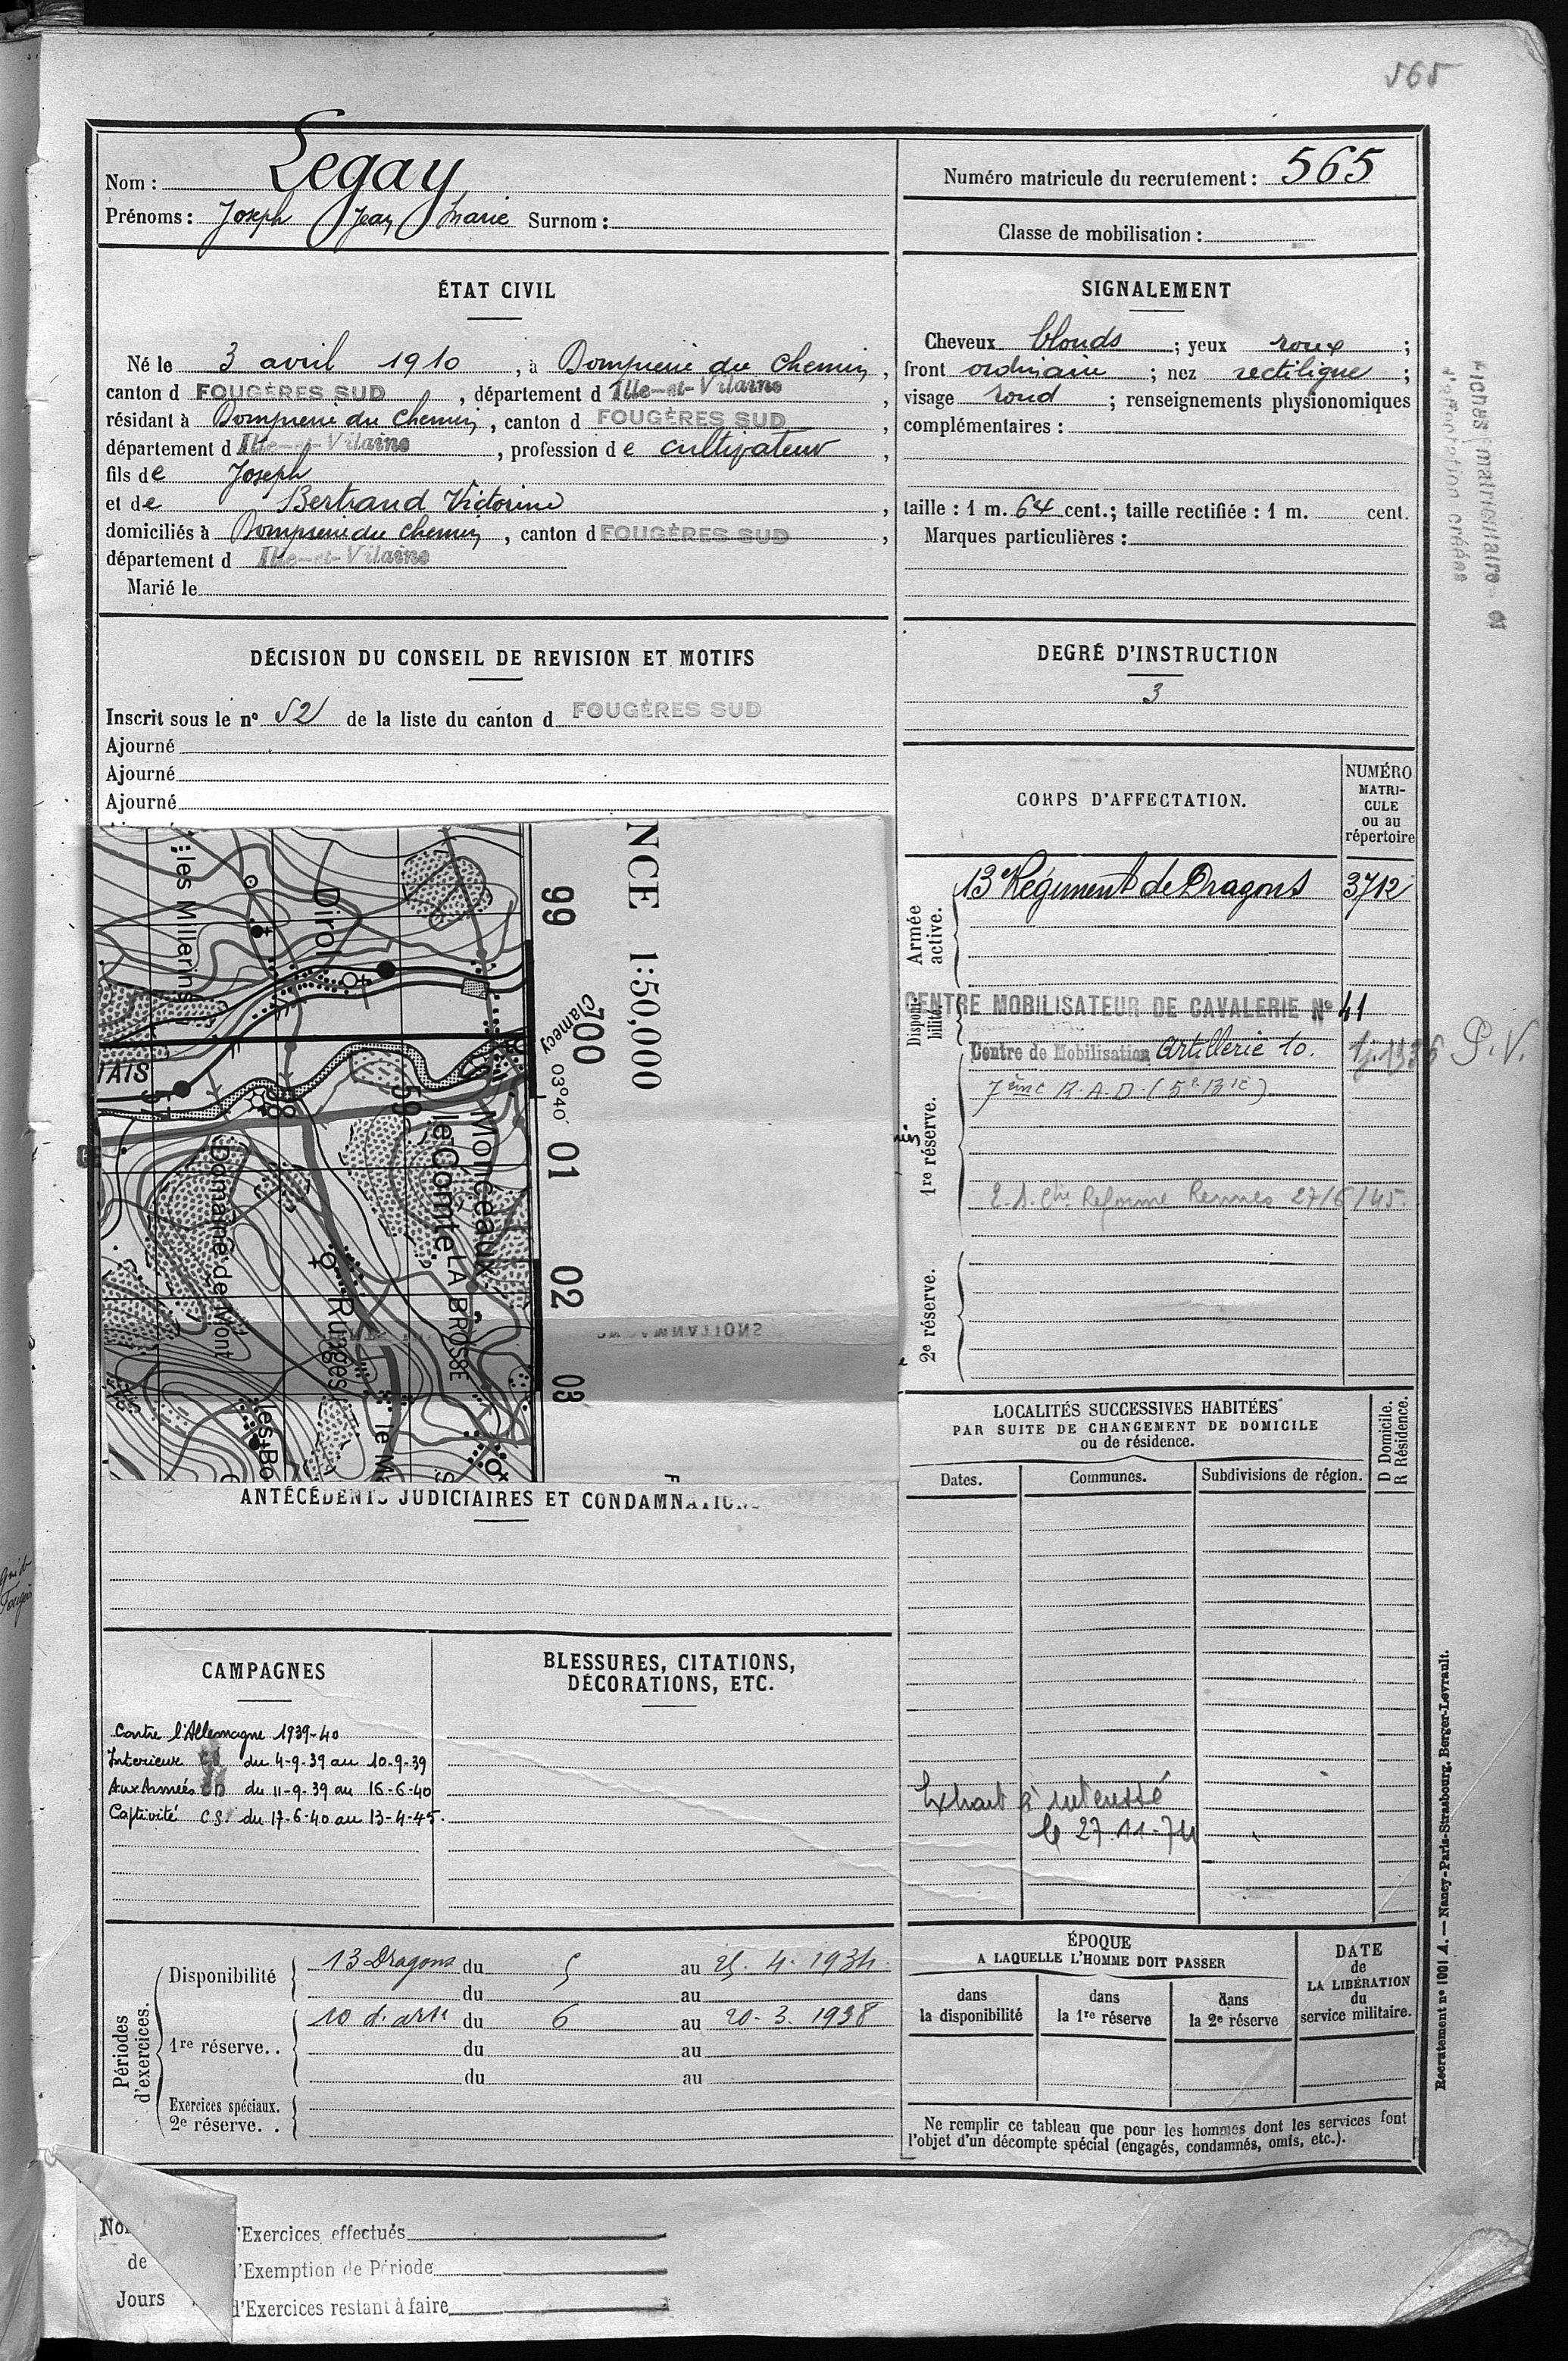 565
Nom : Legay
Prénoms : Joseph Jean Marie Surnom :
Numéro matricule du recrutement : 565
Classe de mobilisation :
ÉTAT CIVIL
Né le 3 avril 1910, à Dompierre du Chemin,
canton d FOUGÈRES SUD, département d Ille-et-Vilaine,
résidant à Dompierre du Chemin, canton d FOUGÈRES SUD,
département d Ille-et-Vilaine, profession de cultivateur,
fils de Joseph
et de Bertrand Victorine,
domiciliés à Dompierre du Chemin, canton d FOUGÈRES SUD,
département d Ille-et-Vilaine
Marié le
SIGNALEMENT
Cheveux blonds ; yeux roux ;
front ordinaire ; nez rectiligne ;
visage rond ; renseignements physionomiques
complémentaires :
taille : 1 m. 64 cent.; taille rectifiée : 1 m. cent.
Marques particulières :
matriculaire et
créées
DÉCISION DU CONSEIL DE REVISION ET MOTIFS
Inscrit sous le nº 52 de la liste du canton d FOUGÈRES SUD
Ajourné
Ajourné
Ajourné
DEGRÉ D'INSTRUCTION
3
CORPS D'AFFECTATION.
NUMÉRO
MATRI-
CULE
ou au
répertoire
Armée
active.
13e Régiment de Dragons 3712
Disponi-
bilité.
CENTRE MOBILISATEUR DE CAVALERIE Nº 41
Centre de Mobilisation Artillerie 10.
P.V.
1re réserve.
7ème R.A.D. (5e Bie)
Reforme Rennes 27/6/45.
2e réserve.
NCE 1:50,000
99
700
Clamecy
03º40'
01
02
03
les Millerins
Dirol
IAIS
57
58
59
Monceaux
le Comte
LA BROSSE
Domaine de Mont
Ruages
les Bo
le M
ANTÉCÉDENTS JUDICIAIRES ET CONDAMNATIONS
LOCALITÉS SUCCESSIVES HABITÉES
PAR SUITE DE CHANGEMENT DE DOMICILE
ou de résidence.
D Domicile.
R Résidence.
Dates.
Communes.
Subdivisions de région.
Extrait à intéressé
le 27.11.74
CAMPAGNES
Contre l'Allemagne 1939-40
Interieur du 4-9-39 au 10-9-39
Aux Armées CD du 11-9-39 au 16-6-40
Captivité CS du 17-6-40 au 13-4-45.
BLESSURES, CITATIONS,
DÉCORATIONS, ETC.
Périodes
d'exercices.
Disponibilité
13 Dragons du 5 au 25. 4. 1934.
du au
1re réserve..
10 d'artie du 6 au 20. 3. 1938
du au
du au
Exercices spéciaux.
2e réserve. .
ÉPOQUE
A LAQUELLE L'HOMME DOIT PASSER
dans
la disponibilité
dans
la 1re réserve
dans
la 2e réserve
DATE
de
LA LIBÉRATION
du
service militaire.
Ne remplir ce tableau que pour les hommes dont les services font
l'objet d'un décompte spécial (engagés, condamnés, omis, etc.).
Recrutement nº 1001 A. — Nancy-Paris-Strasbourg, Berger-Levrault.
de
Jours
d'Exercices effectués
d'Exemption de Période
d'Exercices restant à faire